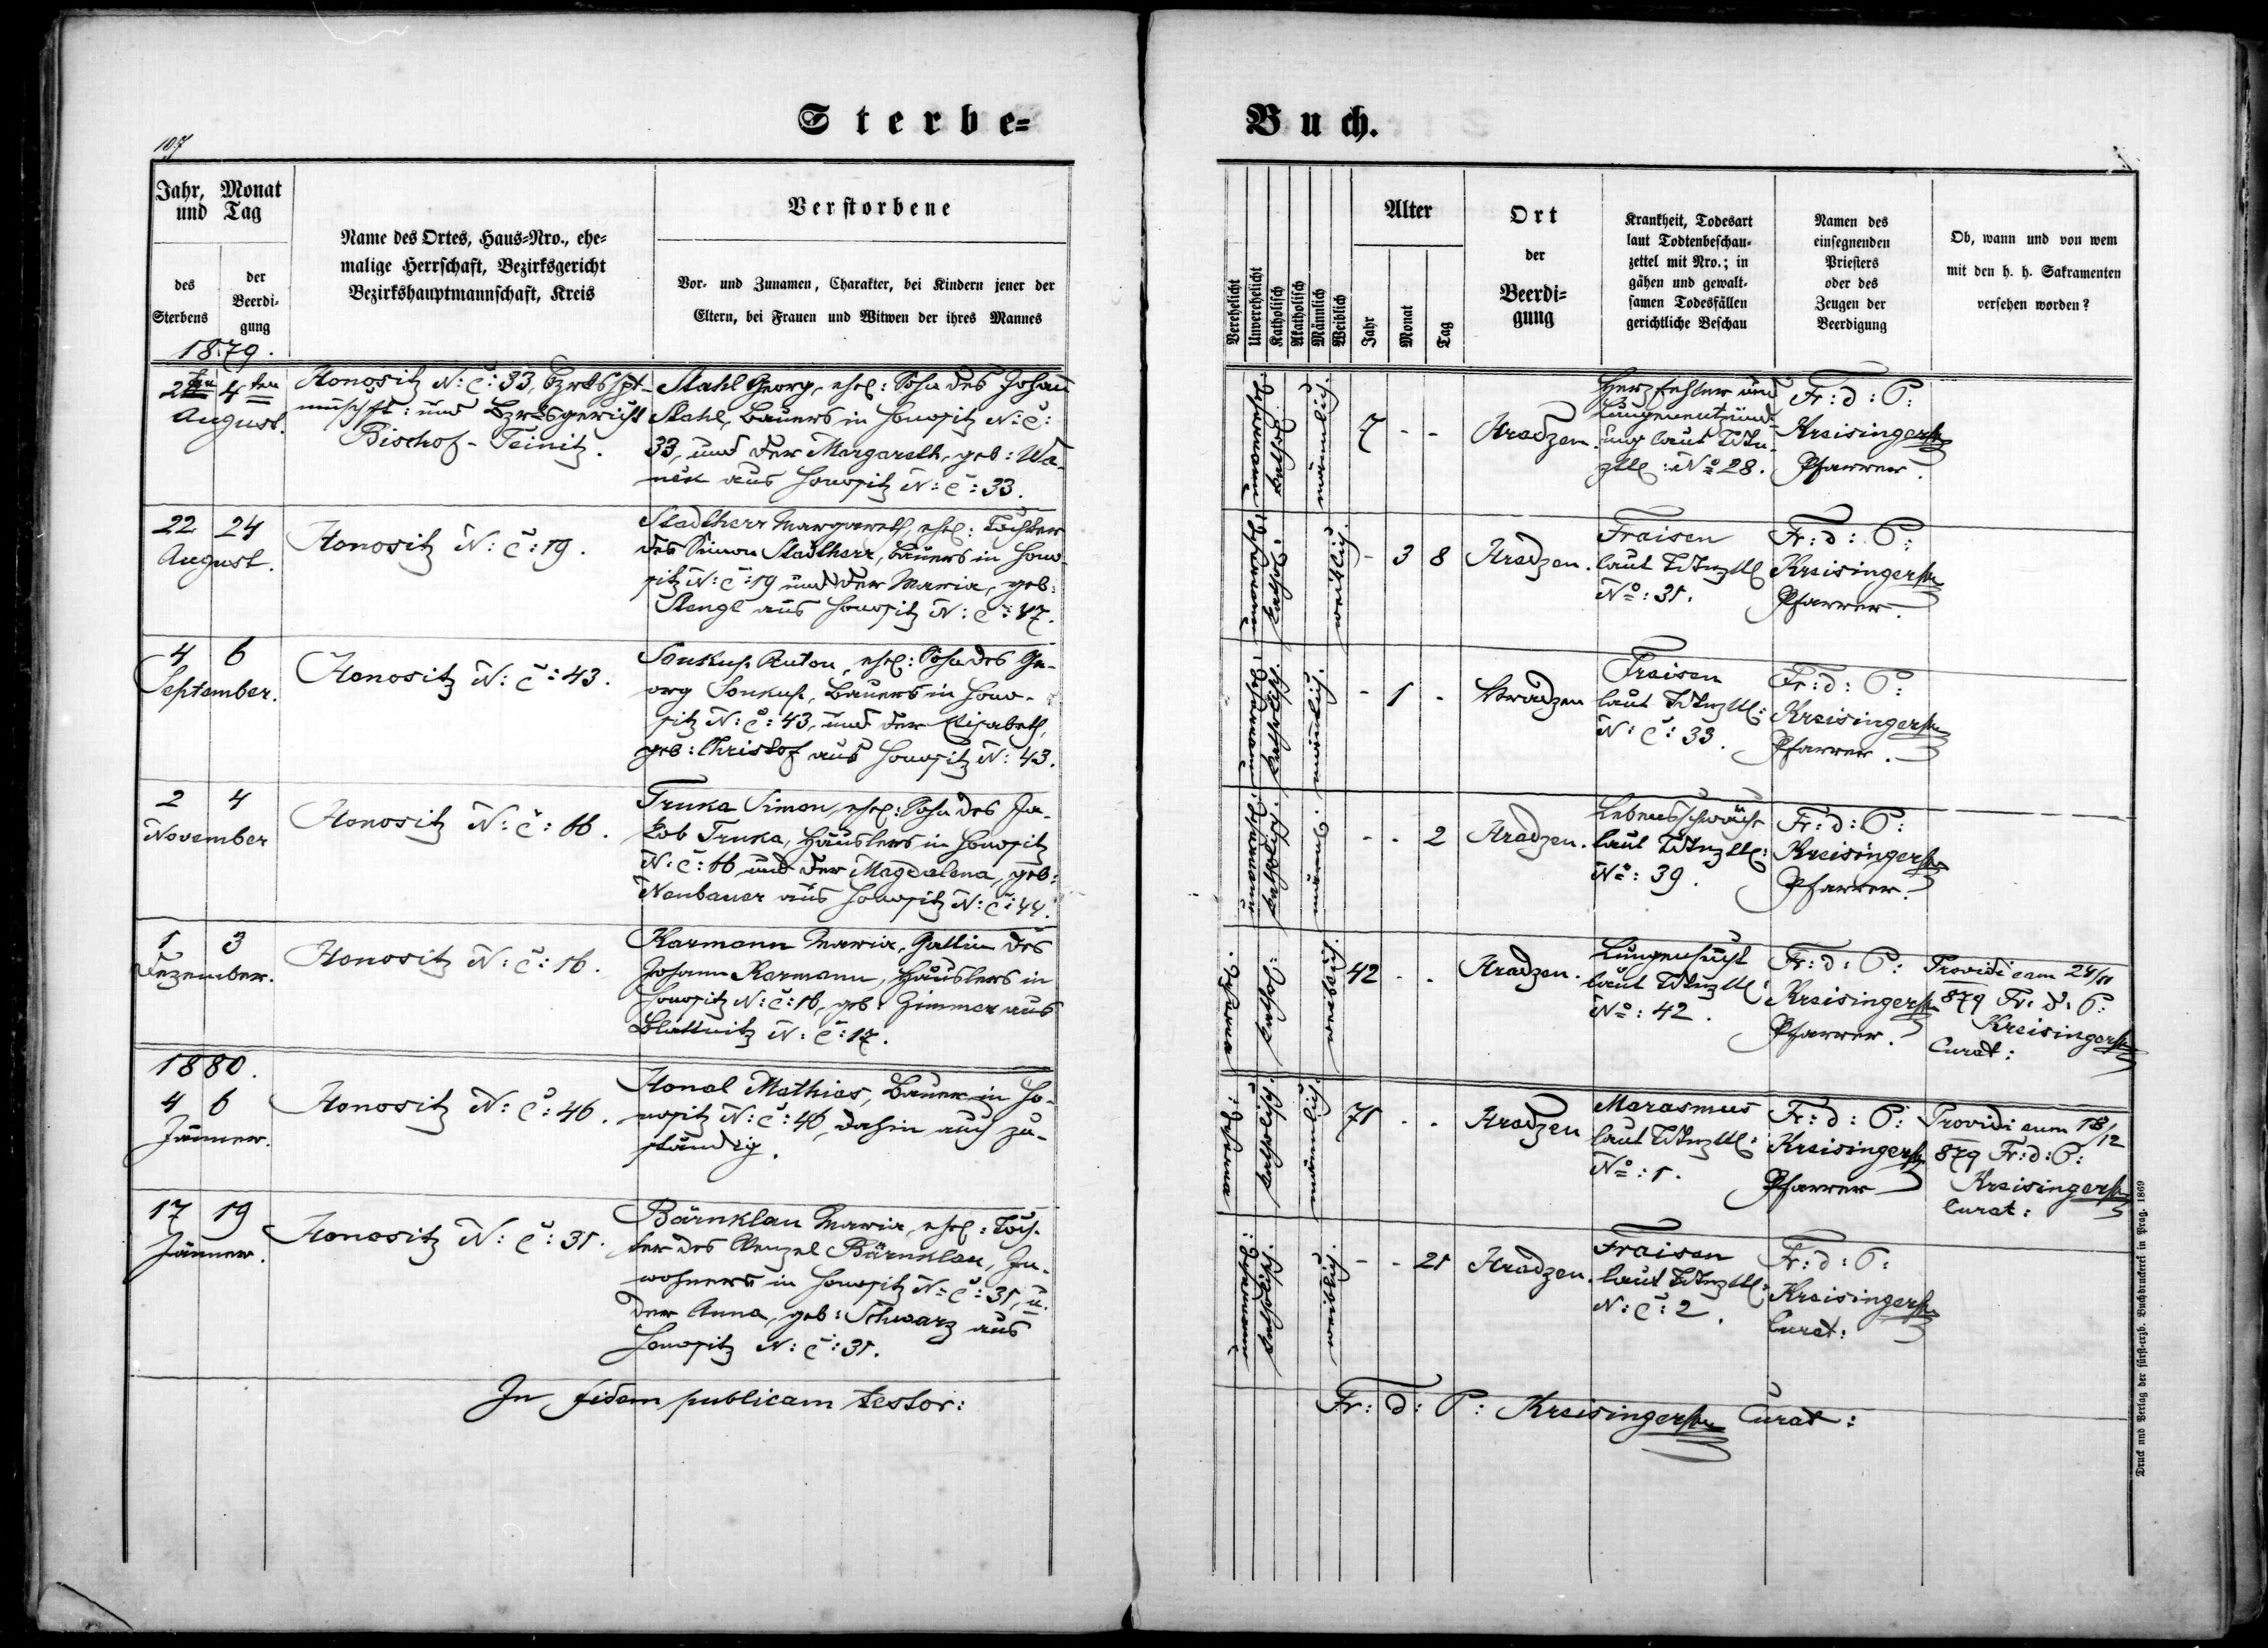 Sterbe=
Buch.
107
Jahr, Monat
und Tag
des
Sterbens
der
Beerdi-
gung
Name des Ortes, Haus=Nro., ehe=
malige Herrschaft, Bezirksgericht
Bezirkshauptmannschaft, Kreis
Verstorbene
Vor- und Zunamen, Charakter, bei Kindern jener der
Eltern, bei Frauen und Witwen der ihres Mannes
Verehelicht
Unverehelicht
Katholisch
Akatholisch
Männlich
Weiblich
Alter
Jahr
Monat
Tag
Ort
der
Beerdi=
gung
Krankheit, Todesart
laut Todtenbeschau-
zettel mit Nro.; in
gähen und gewalt-
samen Todesfällen
gerichtliche Beschau
Namen des
einsegnenden
Priesters
oder des
Zeugen der
Beerdigung
Ob, wann und von wem
mit den h. h. Sakramenten
versehen worden?
1879.
2ten 4ten
August.
Honositz N: C: 33,
und Bzrksgericht
Bischof-Teinitz.
Stahl Georg, ehel: Sohn des Johann
Stahl, Bauers in Honositz N: C:
33, und der Margareth, geb: Wa-
nek aus Honositz N: C: 33.
kathol:
männlich.
7 - -
Hradzen.
Herzfehler und
Lungenentzünd-
ung laut
N° 28.
Fr: d: P:
Kreisinger
Pfarrer.
22 24
August.
Honositz N: C: 19.
Stadtherr Margareth, ehel: Tochter
des Simon Stadtherr, Bauers in Hono-
sitz N: C: 19 und der Maria, geb:
Stengl aus Honositz N: C: 47.
kathol:
weiblich.
- 3 8
Hradzen.
Fraisen
laut
N°: 31.
Fr: d: P:
Kreisinger
Pfarrer.
4 6
September.
Honositz N: C: 43.
Soukup Anton, ehel: Sohn des Ge-
org Soukup, Bauers in Hono-
sitz N: C: 43, und der Elisabeth,
geb: Christof aus Honositz N: 43.
katholisch.
männlich.
- 1 -
Hradzen
Fraisen
laut
N: C: 33.
Fr: d: P:
Kreisinger
Pfarrer.
2 4
November
Honositz N: C: 66.
Trnka Simon, ehel: Sohn des Ja-
kob Trnka, Häuslers in Honositz
N: C: 66 und der Magdalena, geb:
Neubauer aus Honositz N: C: 44.
katholisch.
- - 2
Hradzen.
Lebensschwäche
laut
N°: 39.
Fr: d: P:
Kreisinger
Pfarrer.
1 3
Dezember.
Honositz N: C: 16.
Karmann Maria, Gattin des
Johann Karmann, Häuslers in
Honositz N: C: 16, geb: Zimmer aus
Blattnitz N: C: 17.
kathol:
weiblich.
42 - -
Hradzen.
Lungensucht
laut
N°: 42.
Fr: d: P:
Kreisinger
Pfarrer.
Providi eam 24/11
879 Fr: d: P:
Kreisinger
Curat:
1880.
4 6
Jänner.
Honositz N: C: 46.
Honal Mathias, Bauer in Ho-
nositz N: C: 46, dahin auch zu-
ständig.
katholisch.
männlich.
71 - -
Hradzen
Marasmus
laut
N°: 1.
Fr: d: P:
Kreisinger
Pfarrer
Providi eum 18/12
879 Fr: d: P:
Kreisinger
Curat:
17 19
Jänner.
Honositz N: C: 31.
Bärnklau Maria, ehel: Toch-
ter des Wenzel Bärnklau, In-
wohners in Honositz N: C: 31, u.
der Anna, geb: Schwarz aus
Honositz N: C: 31.
katholisch.
weiblich.
- - 21
Hradzen.
Fraisen
laut
N: C: 2.
Fr: d: P:
Kreisinger
Curat:
In fidem publicam testor:
Fr: d: P: Kreisinger Curat:
Druck und Verlag der fürsterzb. Buchdruckerei in Prag. 1869